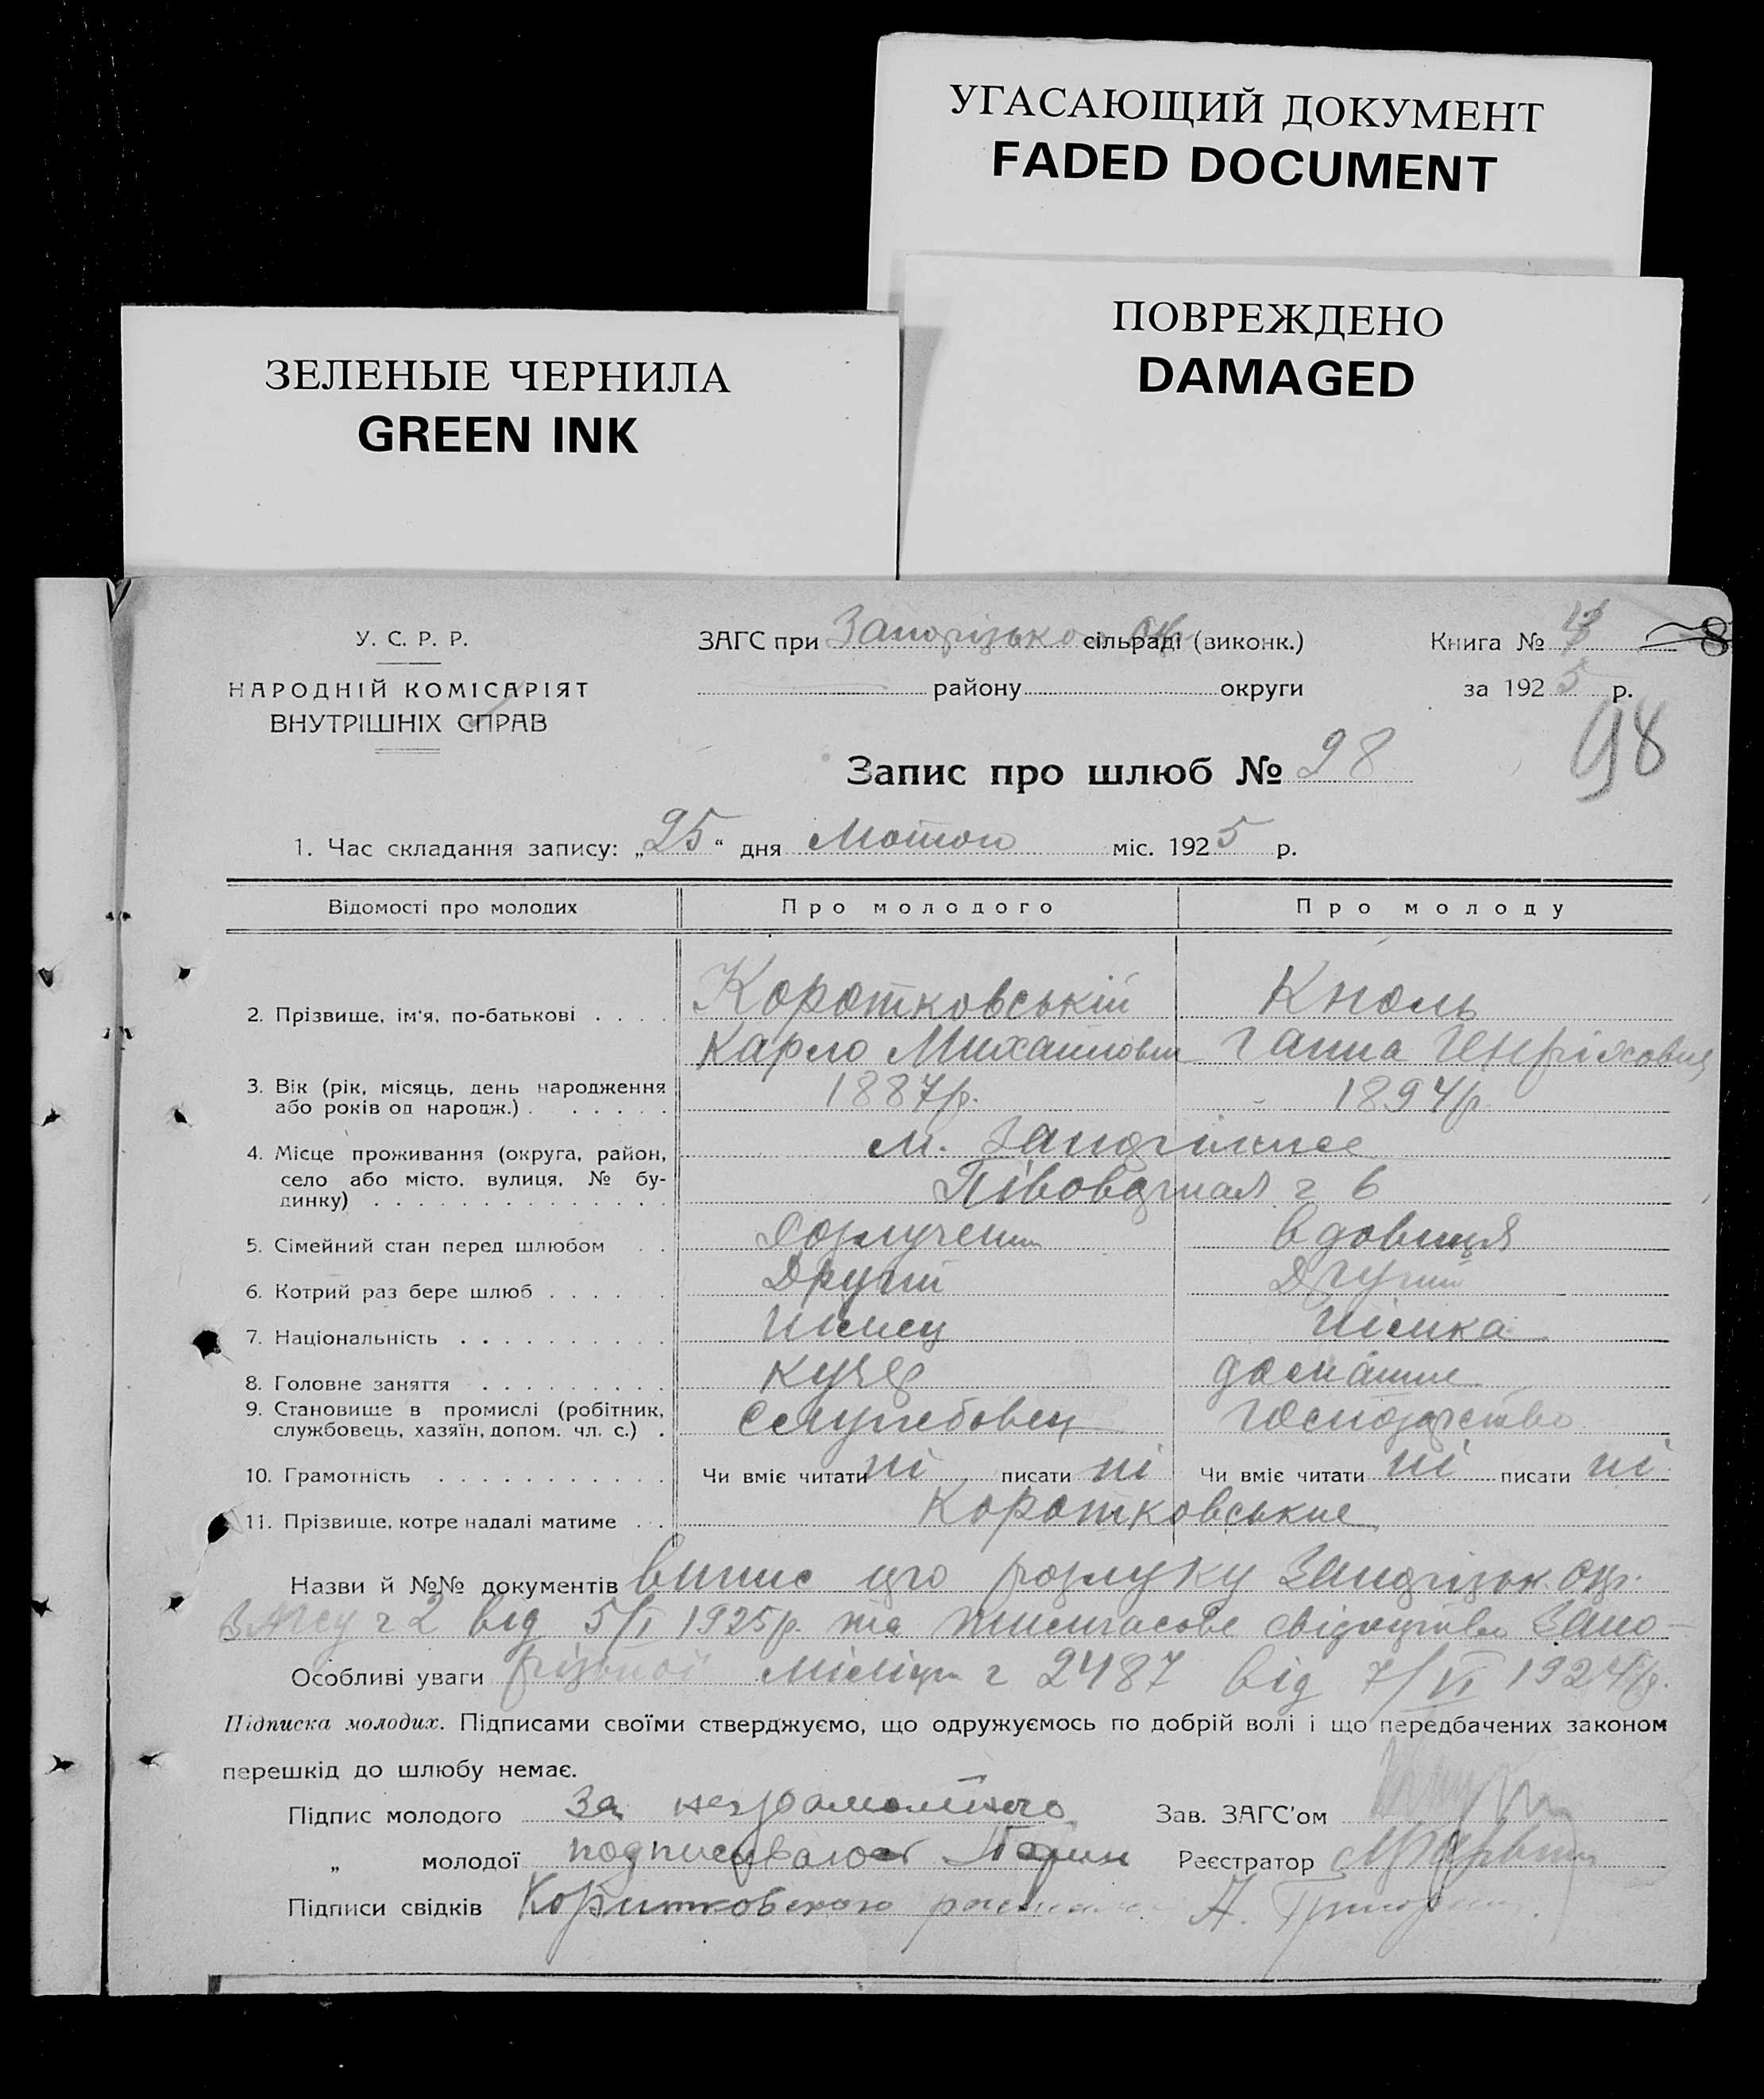 УГАСАЮЩИЙ ДОКУМЕНТ
FADED DOCUMENT
ПОВРЕЖДЕНО
DAMAGED
ЗЕЛЕНЫЕ ЧЕРНИЛА
GREEN INK
У. С. Р. Р.
НАРОДНІЙ КОМІСАРІЯТ
ВНУТРІШНІХ СПРАВ
ЗАГС при Запорізьком окр. сільраді (виконк.)
району округи
Книга №
за 1925 р.
98
Запис про шлюб № 98
1. Час складання запису: „25“ дня Лютого міс. 1925 р.
Відомості про молодих Про молодого Про молоду
2. Прізвище, ім'я, по-батькові Коротковській Кноль
Карло Михайлович Ганна Генріховна
3. Вік (рік, місяць, день народження або років од народж.) 1887р. 1894р.
4. Місце проживання (округа, район, село або місто, вулиця, № будинку) м. Запоріжжє
Півоварная 6
5. Сімейний стан перед шлюбом розлучений вдовиця
6. Котрий раз бере шлюб Другий Другий
7. Національність Німец Німка
8. Головне заняття кучер домашне
9. Становище в промислі (робітник, службовець, хазяїн, допом. чл. с.) Служебовец господарство
10. Грамотність Чи вміє читати ні писати ні Чи вміє читати ні писати ні
11. Прізвище, котре надалі матиме Коротковське
Назви й №№ документів випис про розлуку Запорізьк. Окр.
ЗАГСу ч 2 від 5/I 1925р. та тимчасове свідоцтво Запо-
Особливі уваги різькой міліціи ч 2487 від 7/VI 1924р.
Підписка молодих. Підписами своїми стверджуємо, що одружуємось по добрій волі і що передбачених законом
перешкід до шлюбу немає.
Підпис молодого За неграмотного
Зав. ЗАГС'ом
„ молодої подписываюсь
Реєстратор
Підписи свідків Коритковского